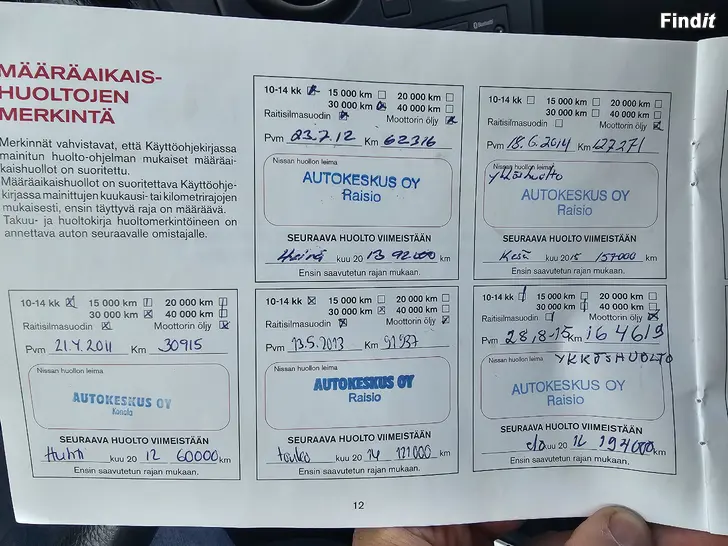 Findit
MÄÄRÄAIKAIS-
HUOLTOJEN
MERKINTÄ
Merkinnät vahvistavat, että Käyttöohjekirjassa
mainitun huolto-ohjelman mukaiset määräai-
kaishuollot on suoritettu.
Määräaikaishuollot on suoritettava Käyttöohje-
kirjassa mainittujen kuukausi- tai kilometrirajojen
mukaisesti, ensin täyttyvä raja on määräävä.
Takuu- ja huoltokirja huoltomerkintöineen on
annettava auton seuraavalle omistajalle.
10-14 kk 15 000 km 20 000 km
30 000 km 40 000 km
Raitisilmasuodin Moottorin öljy
Pvm 23.7.12 Km 62316
Nissan huollon leima
AUTOKESKUS OY
Raisio
SEURAAVA HUOLTO VIIMEISTÄÄN
Heinä kuu 2013 92000 km
Ensin saavutetun rajan mukaan.
10-14 kk 15 000 km 20 000 km
30 000 km 40 000 km
Raitisilmasuodin Moottorin öljy
Pvm 18.6.2014 Km 127271
Nissan huollon leima
Ykköshuolto
AUTOKESKUS OY
Raisio
SEURAAVA HUOLTO VIIMEISTÄÄN
Kesä kuu 2015 157000 km
Ensin saavutetun rajan mukaan.
10-14 kk 15 000 km 20 000 km
30 000 km 40 000 km
Raitisilmasuodin Moottorin öljy
Pvm 21.4.2011 Km 30915
Nissan huollon leima
AUTOKESKUS OY
Konala
SEURAAVA HUOLTO VIIMEISTÄÄN
Huhti kuu 2012 60000 km
Ensin saavutetun rajan mukaan.
10-14 kk 15 000 km 20 000 km
30 000 km 40 000 km
Raitisilmasuodin Moottorin öljy
Pvm 13.5.2013 Km 91937
Nissan huollon leima
AUTOKESKUS OY
Raisio
SEURAAVA HUOLTO VIIMEISTÄÄN
touko kuu 2014 121000 km
Ensin saavutetun rajan mukaan.
10-14 kk 15 000 km 20 000 km
30 000 km 40 000 km
Raitisilmasuodin Moottorin öljy
Pvm 28.8-15 Km 164619
Nissan huollon leima YKKÖSHUOLTO
AUTOKESKUS OY
Raisio
SEURAAVA HUOLTO VIIMEISTÄÄN
elo kuu 2016 194000 km
Ensin saavutetun rajan mukaan.
12